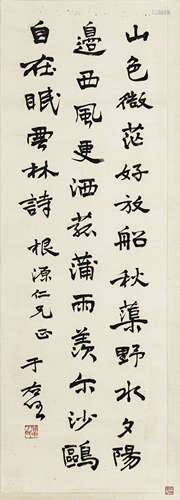 山色微茫好放船秋蕖野水夕陽
邊西風更洒菰蒲雨羨尔沙鷗
自在眠雲林詩 根源仁兄正 于右任